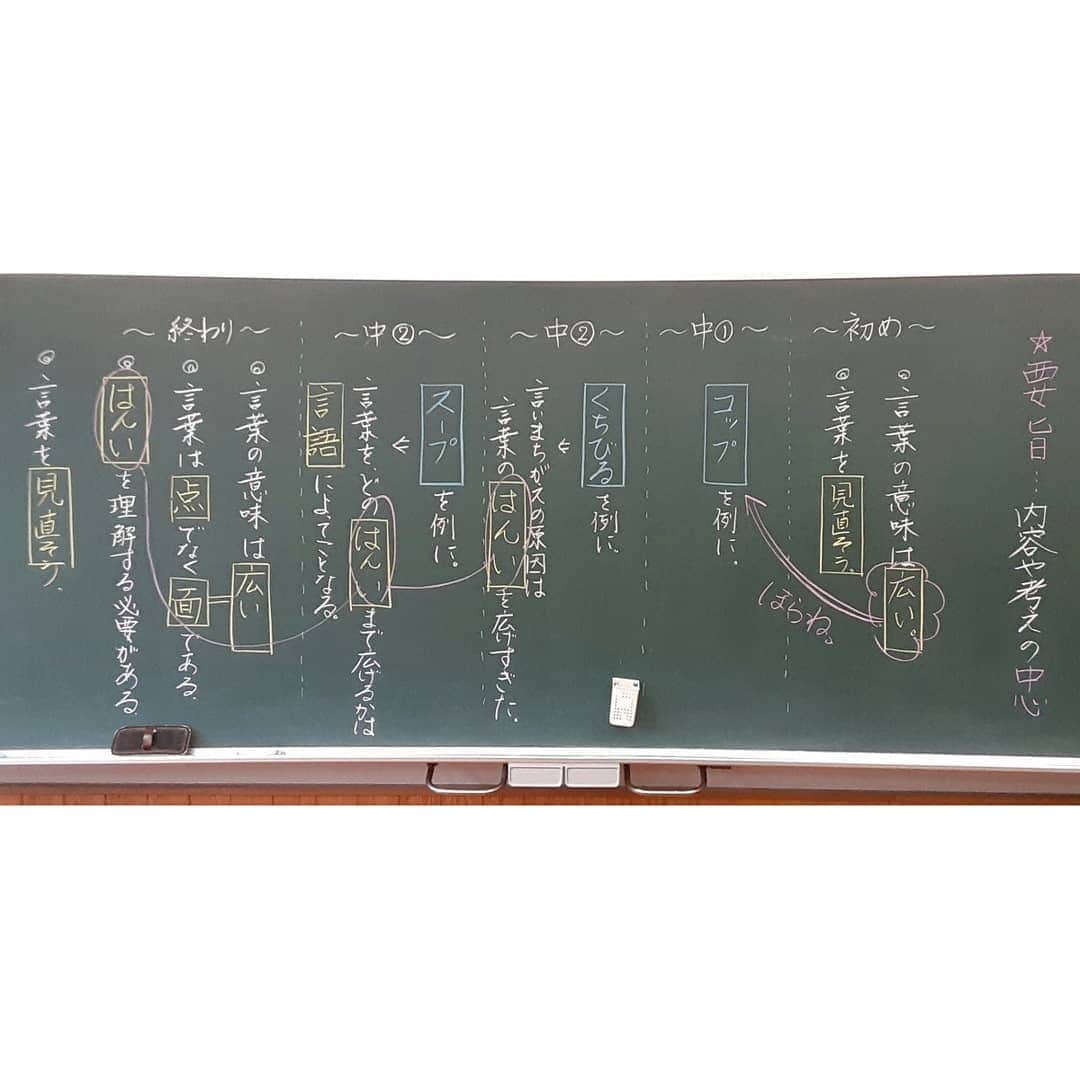 ☆要旨…内容や考えの中心
〜初め〜
◎言葉の意味は広い。
◎言葉を見直そう。
ほらね。
〜中①〜
コップを例に。
〜中②〜
くちびるを例に。
↓
言いまちがえの原因は
言葉のはんいを広げすぎた。
〜中②〜
スープを例に。
↓
言葉をどのはんいまで広げるかは
言語によってことなる。
〜終わり〜
◎言葉の意味は広い
◎言葉は点でなく面である
◎はんいを理解する必要がある
◎言葉を見直そう。